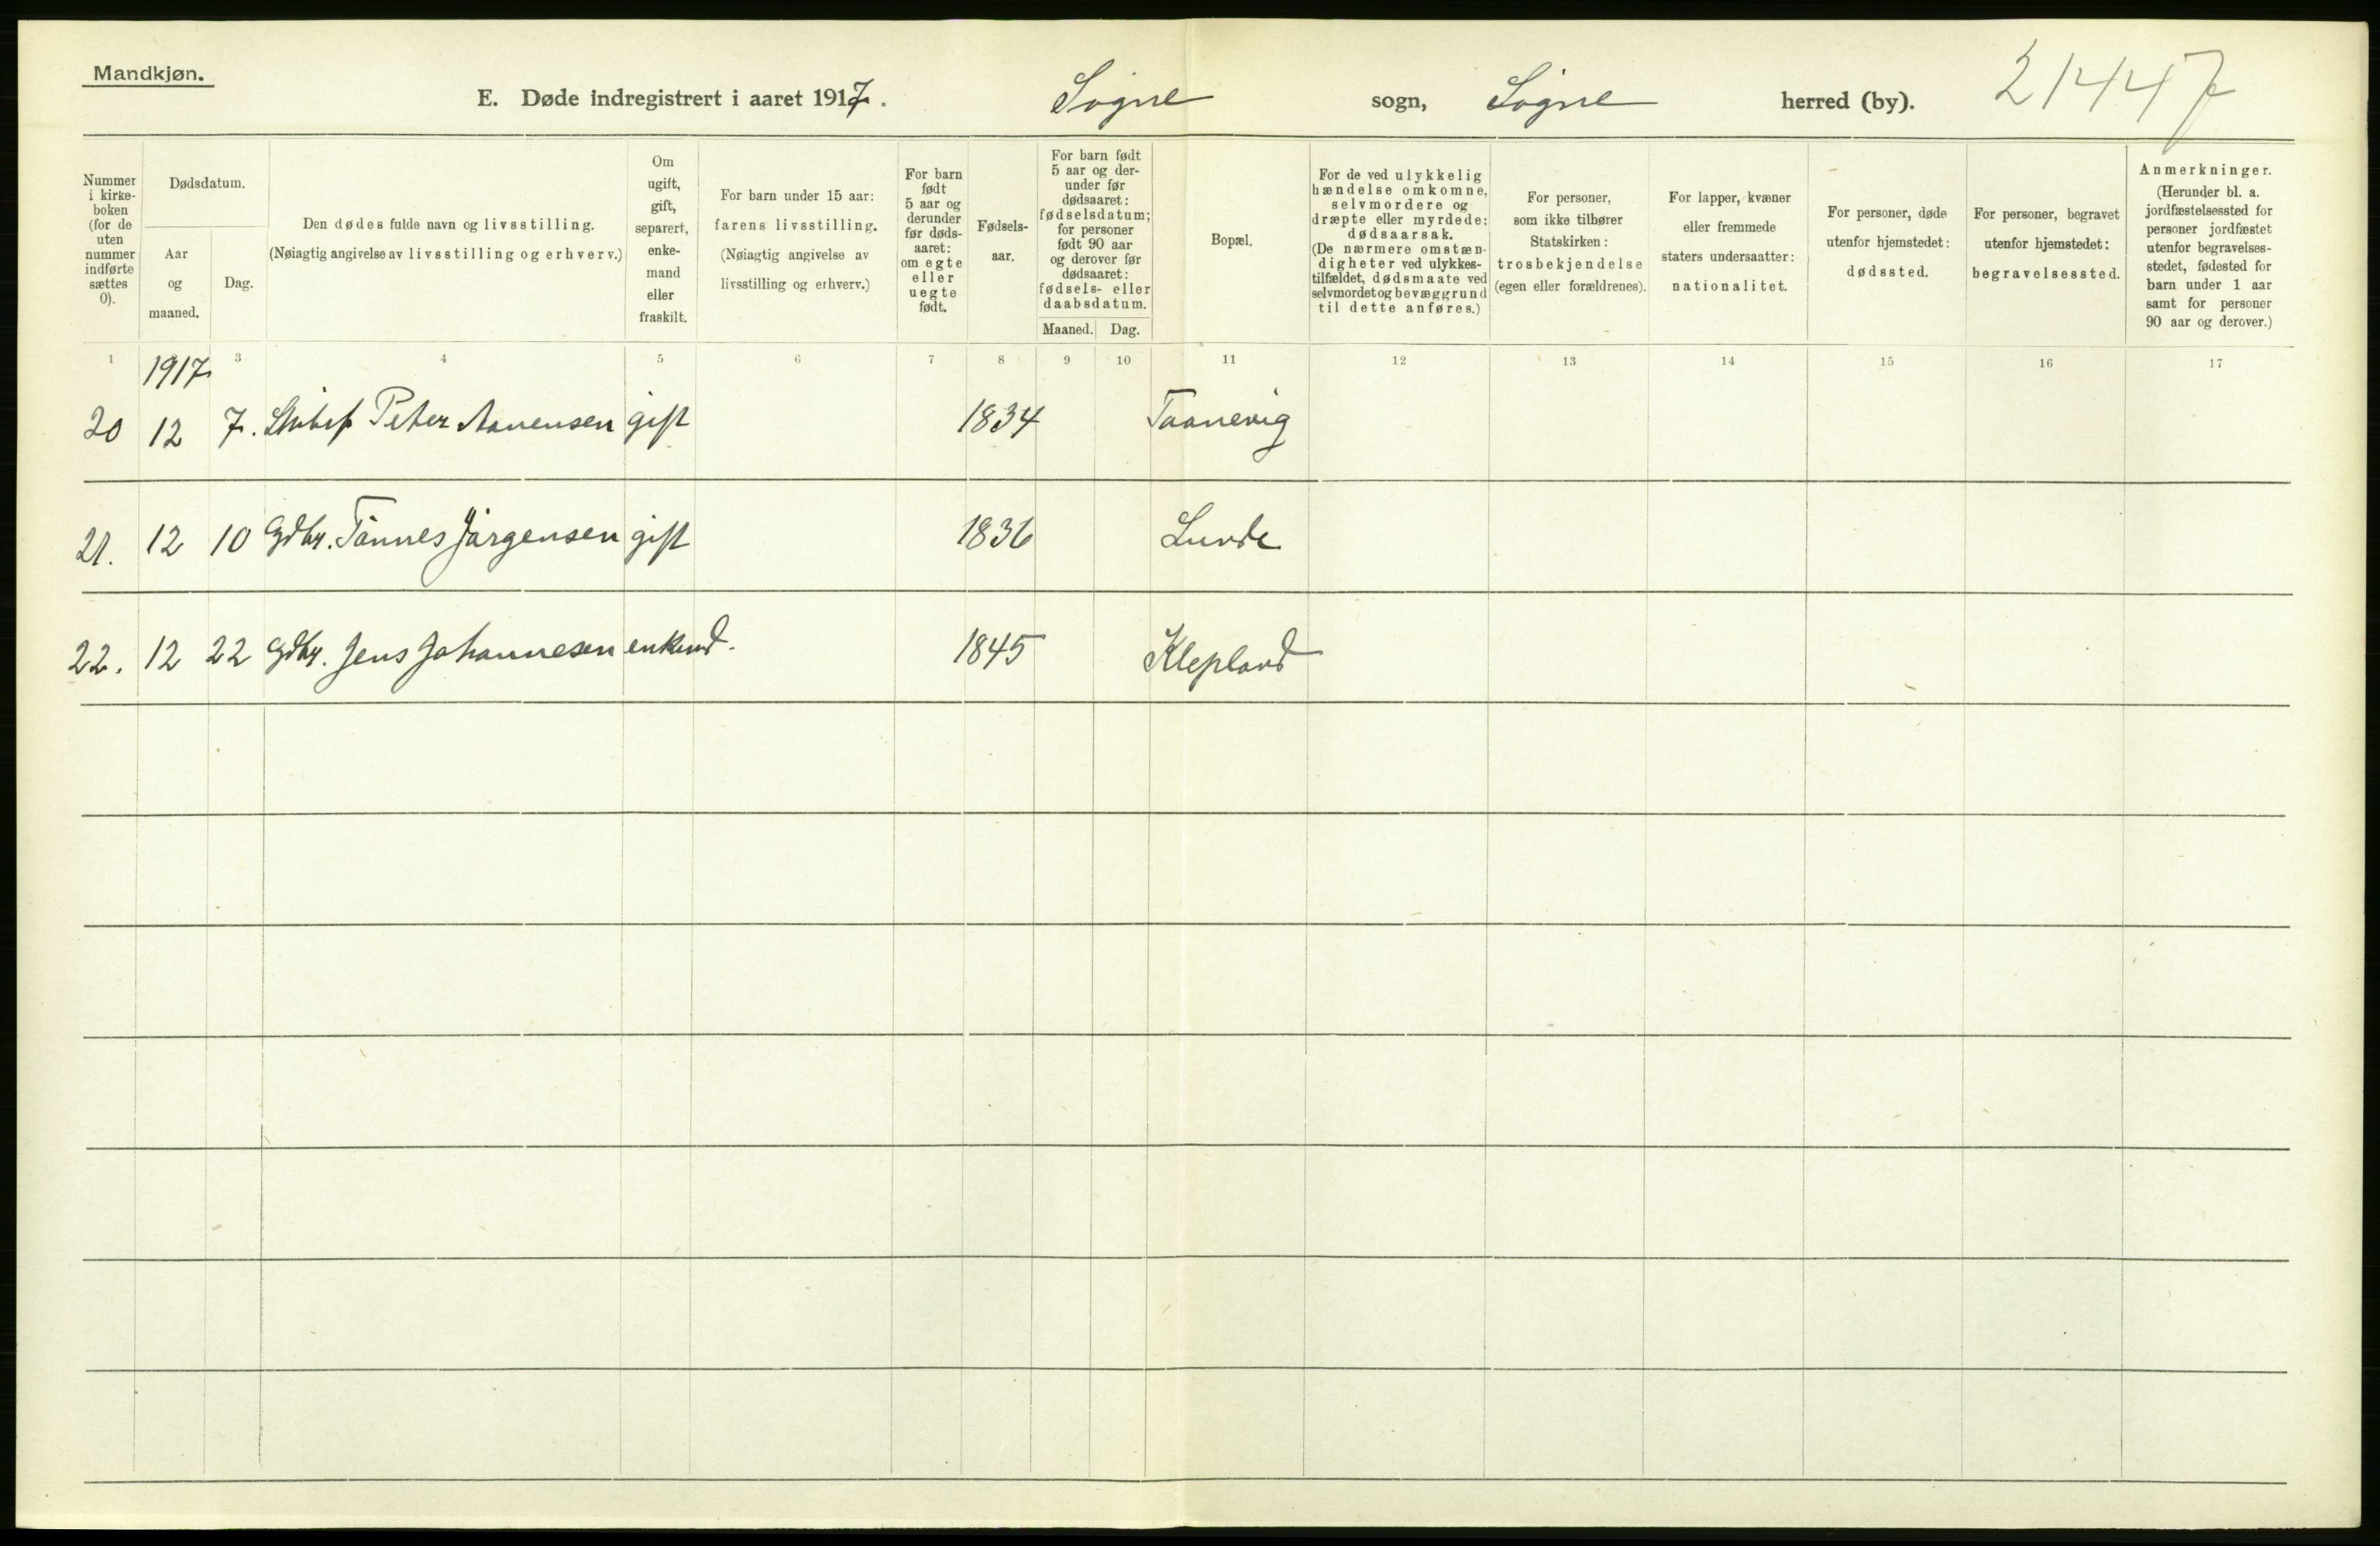 Mandkjøn.
E. Døde indregistrert i aaret 1917. Søgne sogn, Søgne herred (by). 21447
Nummer i kirke-boken (for de uten nummer indførte sættes 0).
Dødsdatum.
Aar og maaned.
Dag.
Den dødes fulde navn og livsstilling.
(Nøiagtig angivelse av livsstilling og erhverv.)
Om ugift, gift, separert, enke-mand eller fraskilt.
For barn under 15 aar:
farens livsstilling.
(Nøiagtig angivelse av livsstilling og erhverv.)
For barn født 5 aar og derunder før døds-aaret: om egte eller uegte født.
Fødsels-aar.
For barn født 5 aar og der-under før dødsaaret: fødselsdatum; for personer født 90 aar og derover før dødsaaret: fødsels- eller daabsdatum.
Maaned. Dag.
Bopæl.
For de ved ulykkelig hændelse omkomne, selvmordere og dræpte eller myrdede: dødsaarsak.
(De nærmere omstæn-digheter ved ulykkes-tilfældet, dødsmaate ved selvmordet og bevæggrund til dette anføres.)
For personer, som ikke tilhører Statskirken: trosbekjendelse (egen eller forældrenes).
For lapper, kvæner eller fremmede staters undersaatter: nationalitet.
For personer, døde utenfor hjemstedet: dødssted.
For personer, begravet utenfor hjemstedet: begravelsessted.
Anmerkninger.
(Herunder bl. a. jordfæstelsessted for personer jordfæstet utenfor begravelses-stedet, fødested for barn under 1 aar samt for personer 90 aar og derover.)
1 3 4 5 6 7 8 9 10 11 12 13 14 15 16 17
1917
20 12 7. Peter Aanensen gift 1834 Taanevig
21. 12 10 Gdbr. Tønnes Jørgensen gift 1836 Lunde
22. 12 22 Gdbr. Jens Johannesen enkemd. 1845 Klepland